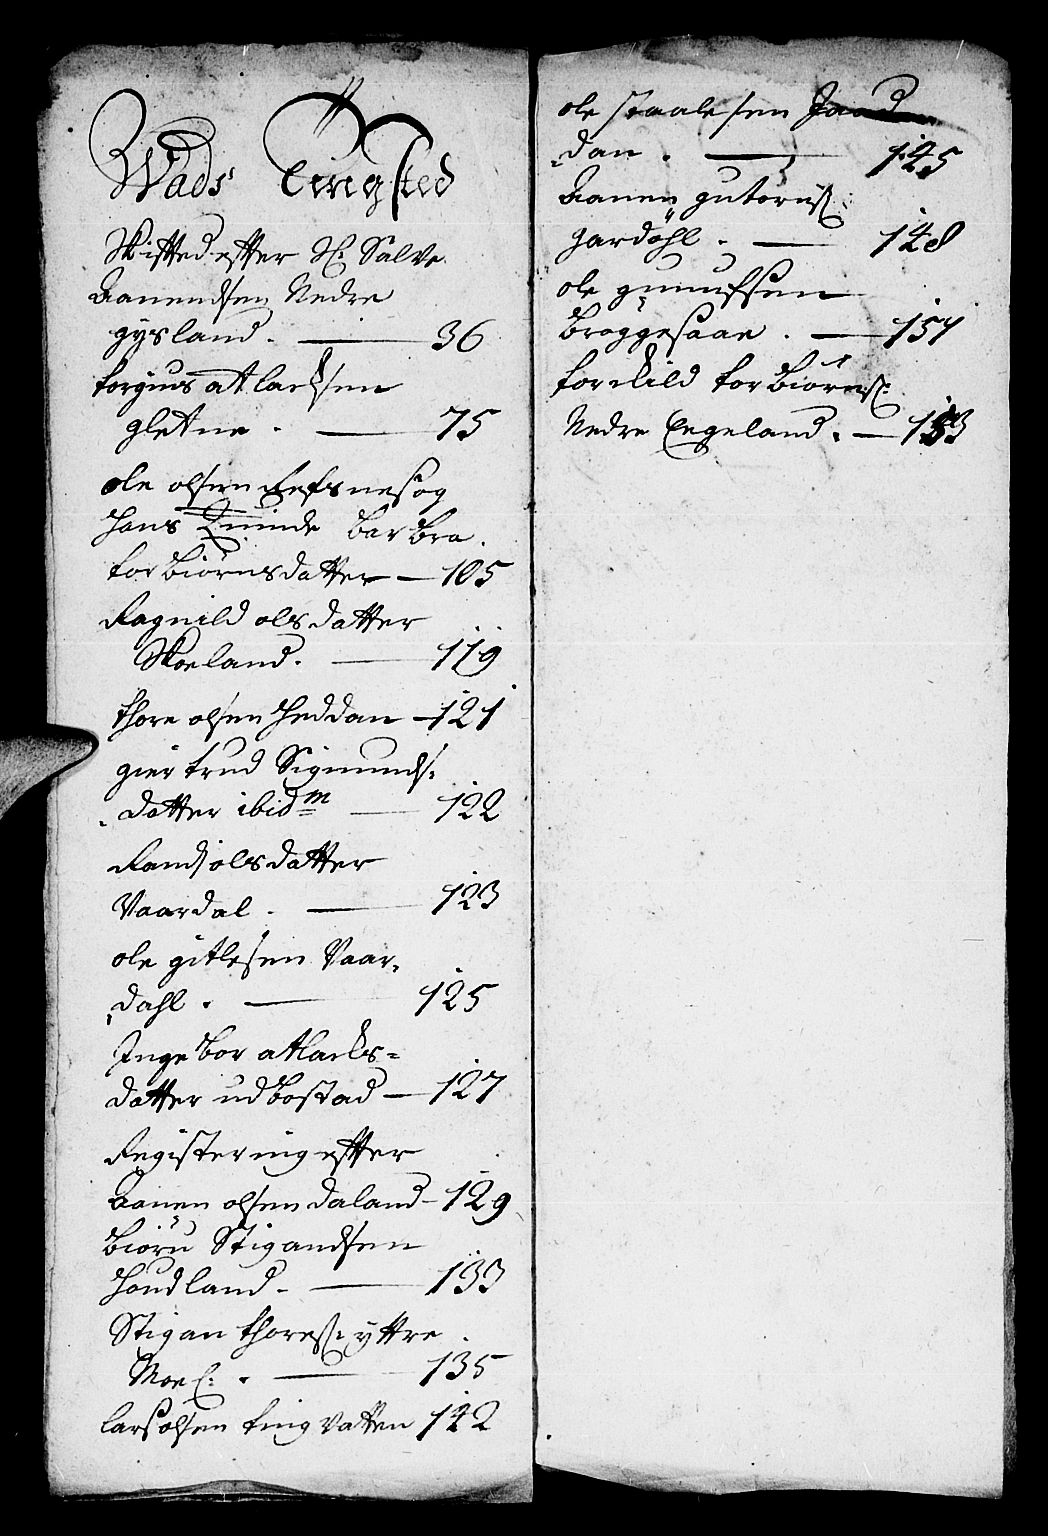 Wads Tingsted
Skifted efter Sl: Salve
Aanendsen Nedre
gysland. — 36
torgius atlachsen
gletne. — 75
ole olsen Refsnes og
hans Quinde barbra
torbiørnsdatter — 105
Ragnild olsdatter
Skoeland. — 119
thore olsen heddan — 121
giertrud Sigmunds:
datter ibidm — 122
Randj olsdatter
Vaardal. — 123
ole gitlesen Vaar,
dahl. — 125
Ingebor atlachs=
datter udbostad — 127
Registering efter
Aanen olsen daland — 129
biørn Stigandsen
houdland — 133
Stigan thoress: yttre
Moe — 135
lars olsen tingvatten 142
ole staalesen
dan. — 145
Aanen gutorms:
gardahl. — 148
ole gunufsen
broggesaae. — 151
torkild torbiørns:
Nedre Eegeland. — 153